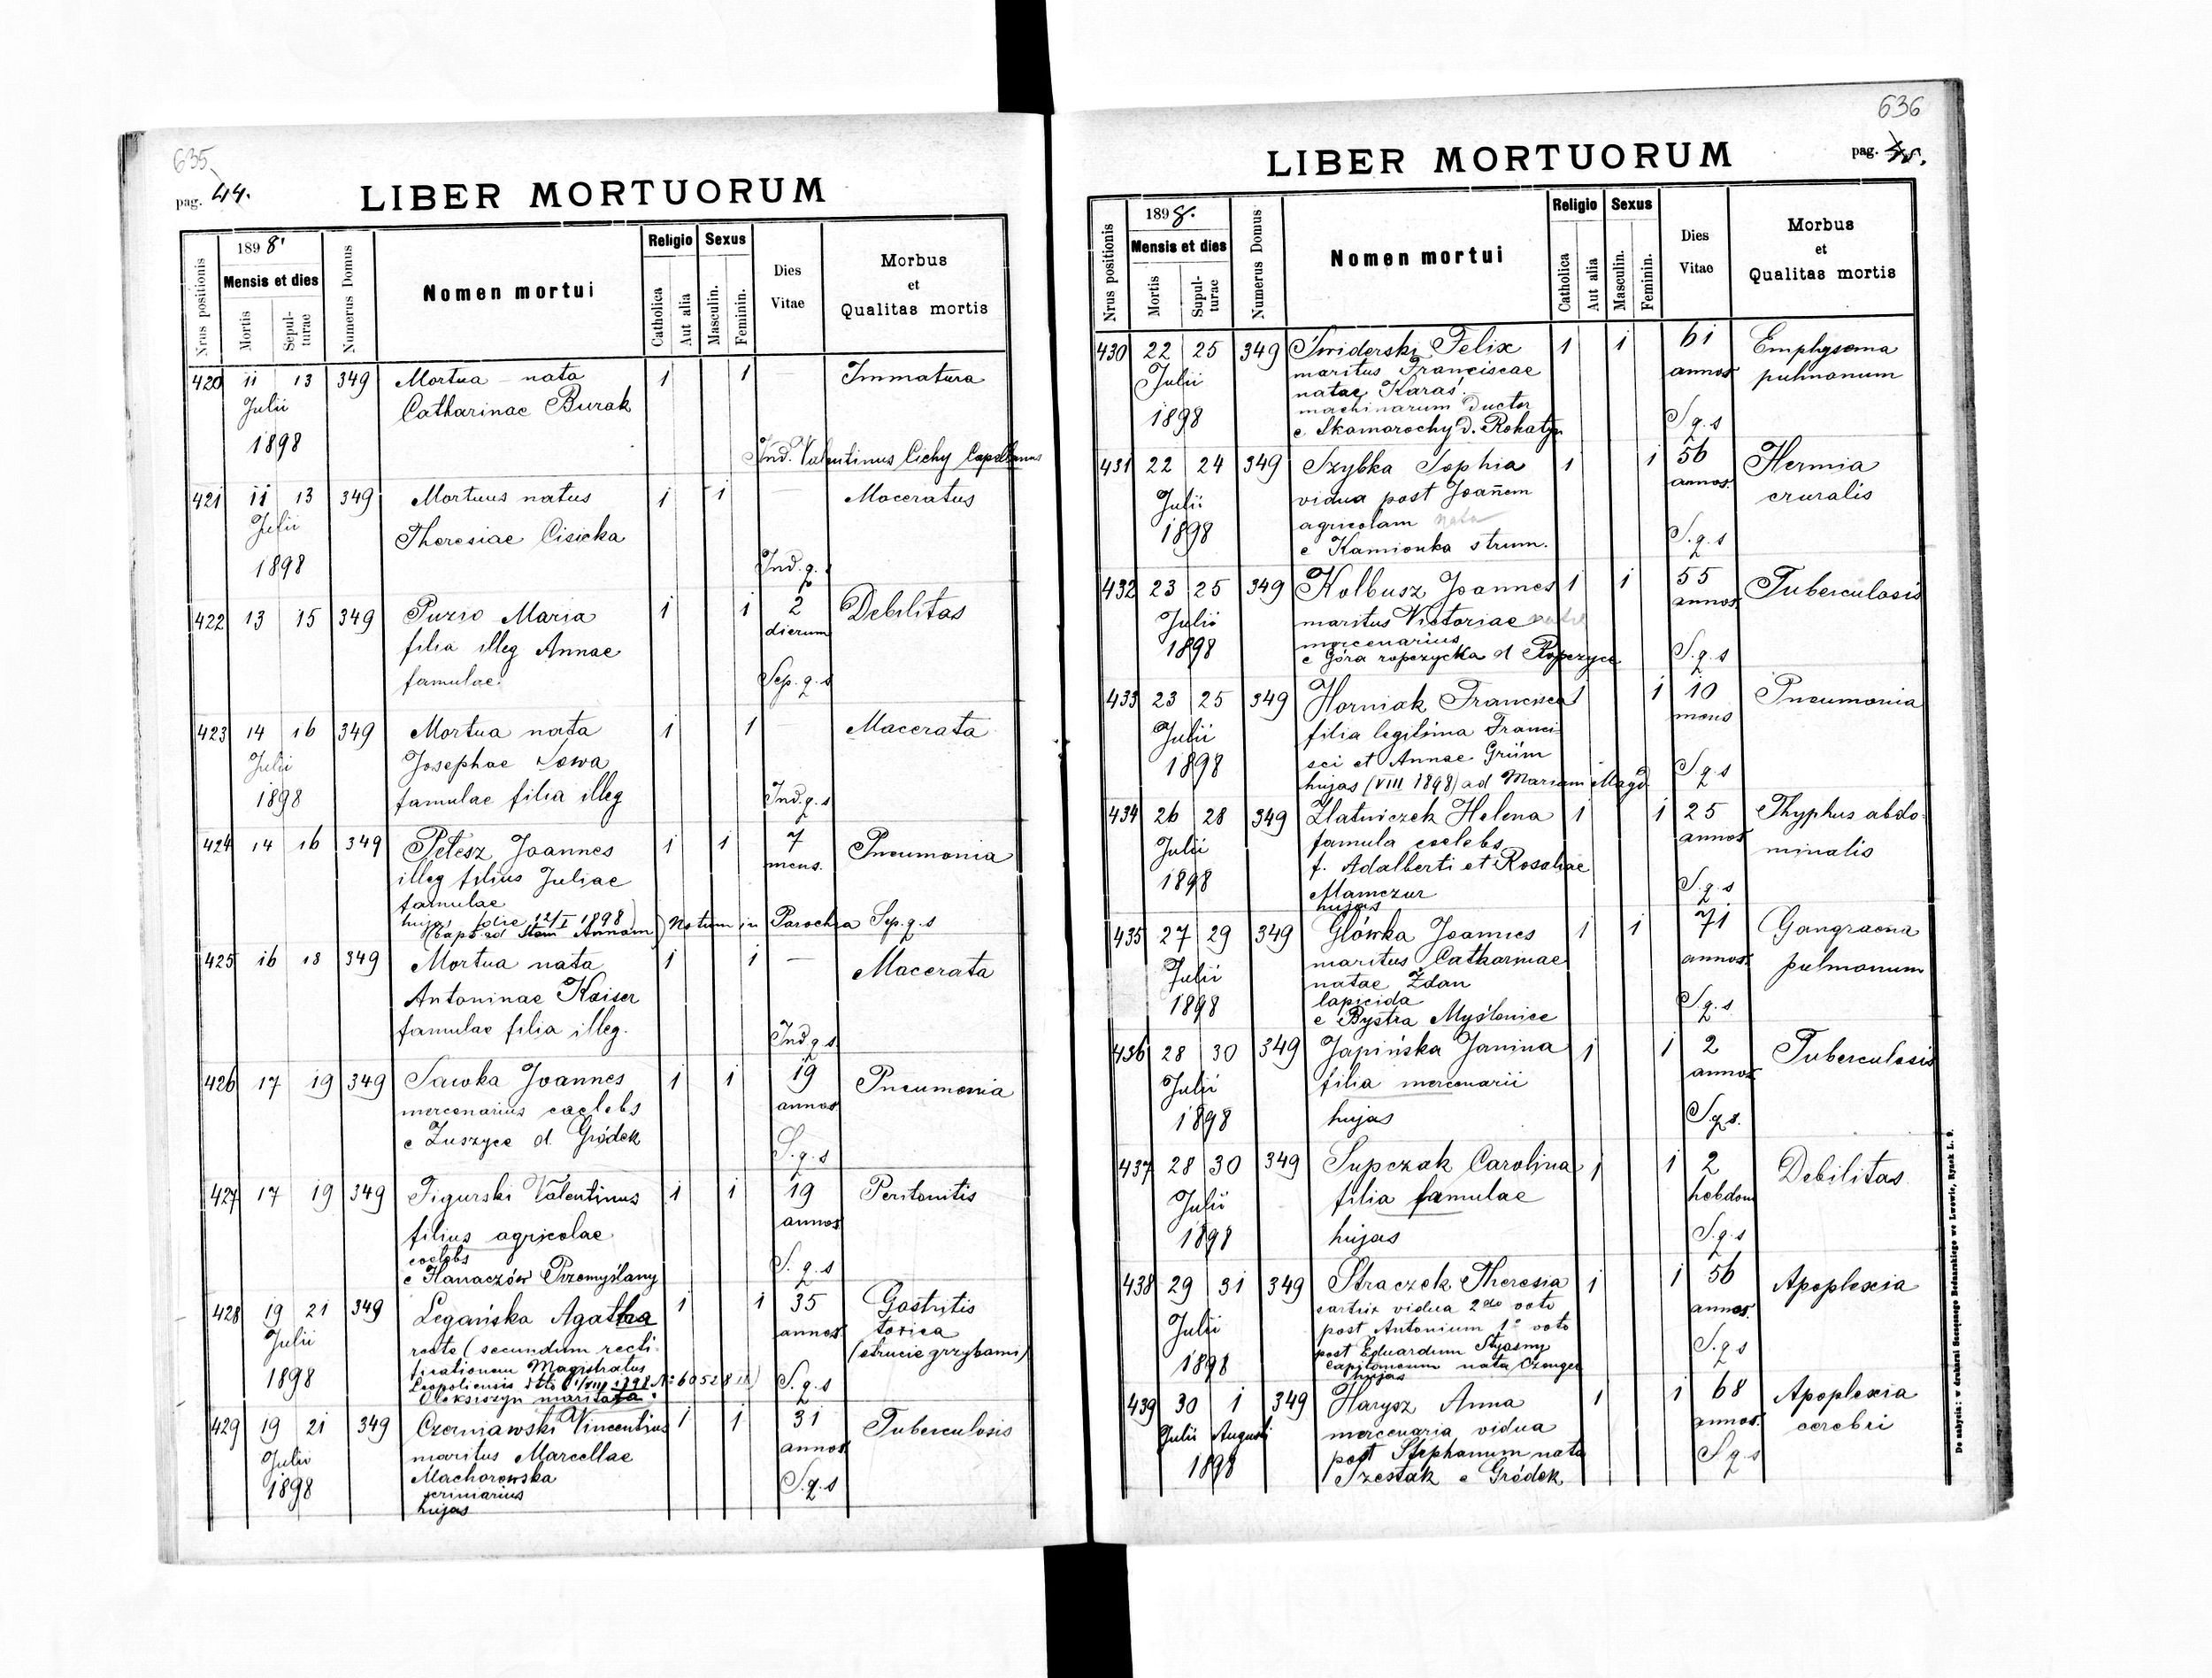 635
pag. 44.
LIBER MORTUORUM
Nrus positionis
1898.
Mensis et dies
Mortis
Sepulturae
Numerus Domus
Nomen mortui
Religio
Catholica
Aut alia
Sexus
Masculin.
Feminin.
Dies Vitae
Morbus et Qualitas mortis
420 11 13 349 Mortua nata 1 1 — Immatura
Julii Catharinae Burak
1898 Ind. Valentinus Cichy Capellanus
421 11 13 349 Mortuus natus 1 1 — Maceratus
Julii Theresiae Cisicka
1898 Ind. q. s
422 13 15 349 Puzio Maria 1 1 2 Debilitas
filia illeg Annae dierum
famulae. Sep. q. s
423 14 16 349 Mortua nata 1 1 Macerata
Julii Josephae Sowa
1898 famulae filia illeg Ind. q. s
424 14 16 349 Petesz Joannes 1 1 7 Pneumonia
illeg filius Juliae mens.
famulae
hujas die 12/I 1898) Natum in Parochia Sep. q. s
(bapt ad Stam Annam)
425 16 18 349 Mortua nata 1 1 — Macerata
Antoninae Kaiser
famulae filia illeg. Ind q. s
426 17 19 349 Sawka Joannes 1 1 19 Pneumonia
mercenarius caelebs annos
e Zuszyce d. Gródek S. q. s
427 17 19 349 Figurski Valentinus 1 1 19 Peritonitis
filius agricolae annos
coelebs
e Hanaczów Przemyślany S. q. s
428 19 21 349 Legańska Agatha 1 1 35 Gastritis
Julii recte (secundum recti- annos toxica
ficationem Magistratus (otrucie grzybami)
1898 Leopoliensis dtto 1/VIII 1898 No 60528 S. q. s
Oleksiszyn maritata.
429 19 21 349 Czerniawski Vincentius 1 1 31 Tuberculosis
Julii maritus Marcellae annos
Machorowska
1898 scriniarius S. q. s
hujas
636
LIBER MORTUORUM
pag.
Nrus positionis
1898.
Mensis et dies
Mortis
Supulturae
Numerus Domus
Nomen mortui
Religio
Catholica
Aut alia
Sexus
Masculin.
Feminin.
Dies Vitae
Morbus et Qualitas mortis
430 22 25 349 Swiderski Felix 1 1 61 Emphysema
Julii maritus Franciscae annos pulmonum
natae Karaś
1898 machinarum ductor S. q. s
e. Skomorochy d. Rohatyn
431 22 24 349 Szybka Sophia 1 1 56 Hermia
Julii vidua post Joannem annos. cruralis
1898 agricolam nata
e Kamionka strum. S. q. s
432 23 25 349 Kolbusz Joannes 1 1 55 Tuberculosis
Julii maritus Victoriae natae annos
1898 mercenarius
e Góra ropczycka d Ropczyce S. q. s
433 23 25 349 Horniak Francisca 1 1 10 Pneumonia
Julii filia legitima Franci- mens
1898 sci et Annae Grüm
hujas (VIII 1898) ad Mariam Magd. S. q. s
434 26 28 349 Zlatniczek Helena 1 1 25 Thyphus abdo-
Julii famula coelebs annos minalis
1898 f. Adalberti et Rosaliae
Mamczur S. q. s
hujas
435 27 29 349 Główka Joannes 1 1 71 Gangraena
Julii maritus Catharinae annos. pulmonum
natae Żdan
1898 lapicida S. q. s
e Bystra Myślenice
436 28 30 349 Japińska Janina 1 1 2 Tuberculosis
Julii filia mercenarii annos
1898 hujas S. q. s.
437 28 30 349 Supczak Carolina 1 1 2 Debilitas
Julii filia famulae hebdom
1898 hujas S. q. s
438 29 31 349 Straczek Theresia 1 1 56 Apoplexia
sartrix vidua 2do voto annos.
Julii post Antonium 1o voto
post Eduardum Styasny S. q. s
1898 capitaneum nata Czenger
hujas
439 30 1 349 Harysz Anna 1 1 68 Apoplexia
Julii Augusti mercenaria vidua annos. cerebri
1898 post Stephanum nata S. q. s
Szestak e Gródek
De nabycia: w drukarni Szczęsnego Bednarskiego we Lwowie, Rynek L. 9.